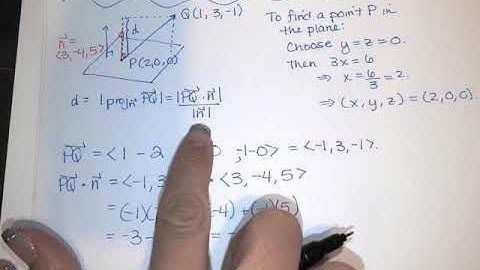 Q(1, 3, -1)
d
n⃗ =
<3, -4, 5>
P(2,0,0)
To find a point P in
the plane:
Choose y = z = 0.
Then 3x = 6
⇒ x = 6/3 = 2.
⇒ (x, y, z) = (2, 0, 0).
d = |proj_n⃗ PQ⃗| = |PQ⃗ · n⃗| / |n⃗|
PQ⃗ = <1 - 2 0 , -1-0> = <-1, 3, -1>.
PQ⃗ · n⃗ = <-1, 3 <3, -4, 5>
= (-1)( -4) + (-1)(5)
= -3 - = -